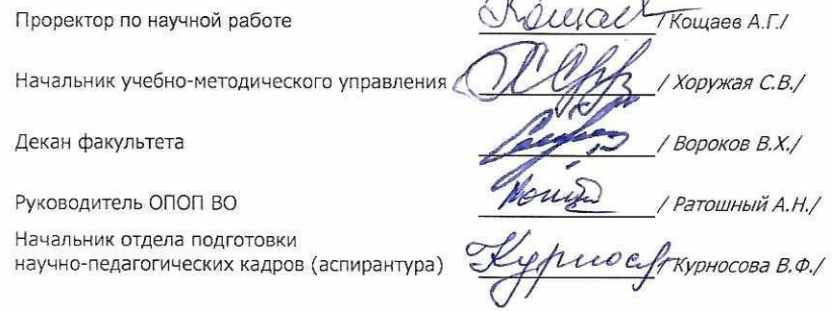 Проректор по научной работе /Кощаев А.Г./
Начальник учебно-методического управления / Хоружая С.В./
Декан факультета / Вороков В.Х./
Руководитель ОПОП ВО / Ратошный А.Н./
Начальник отдела подготовки
научно-педагогических кадров (аспирантура) /Курносова В.Ф./